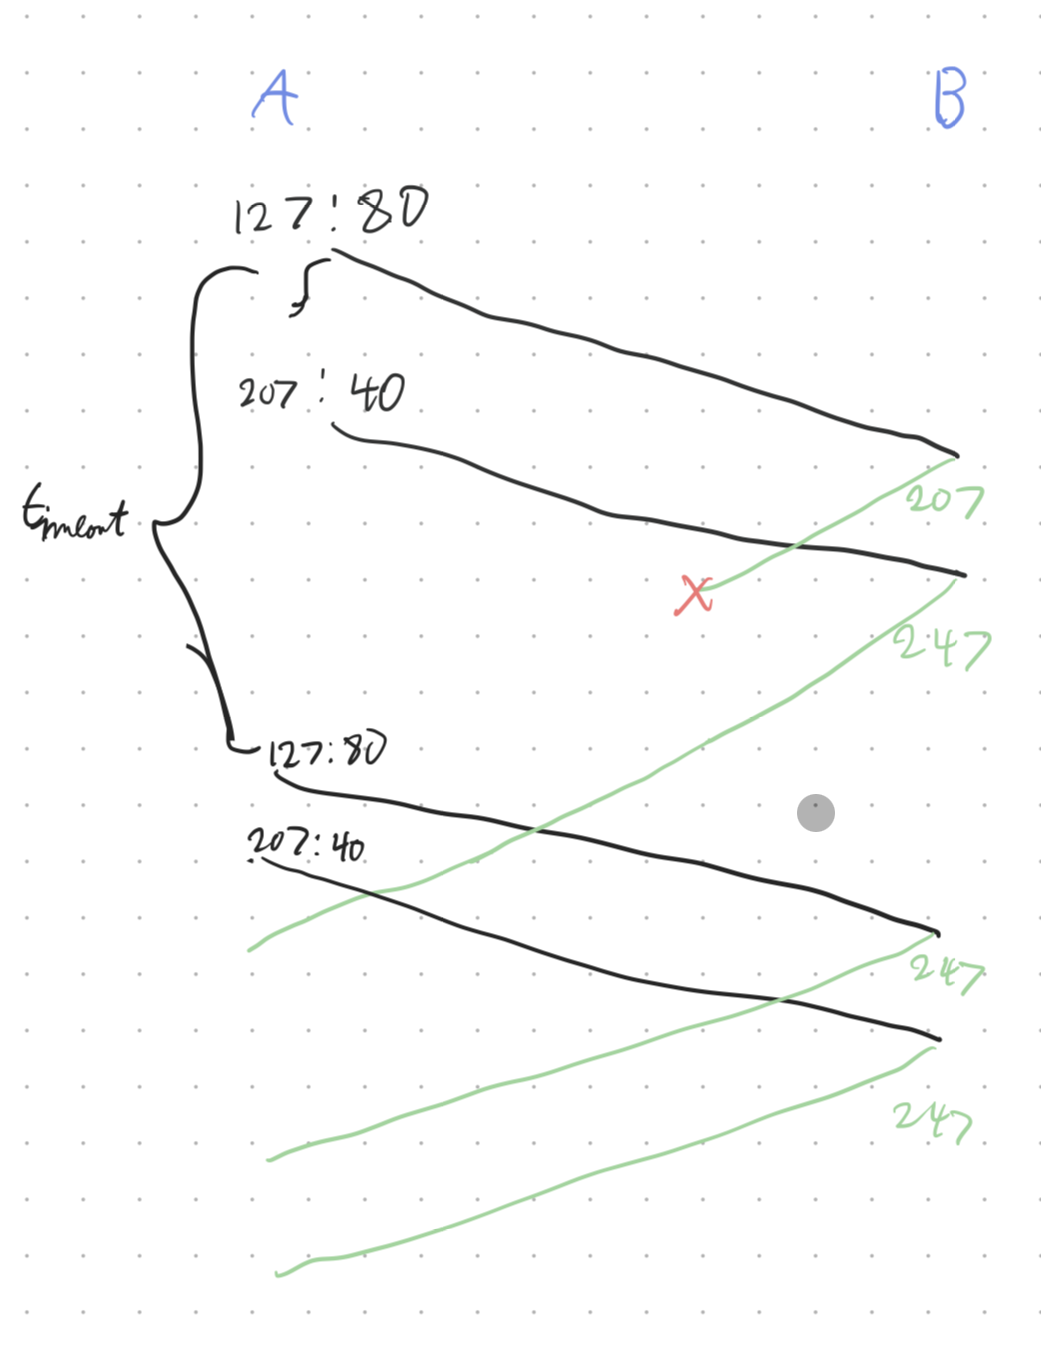 A B
127:80
207:40
207
timeout
247
127:80
207:40
247
247